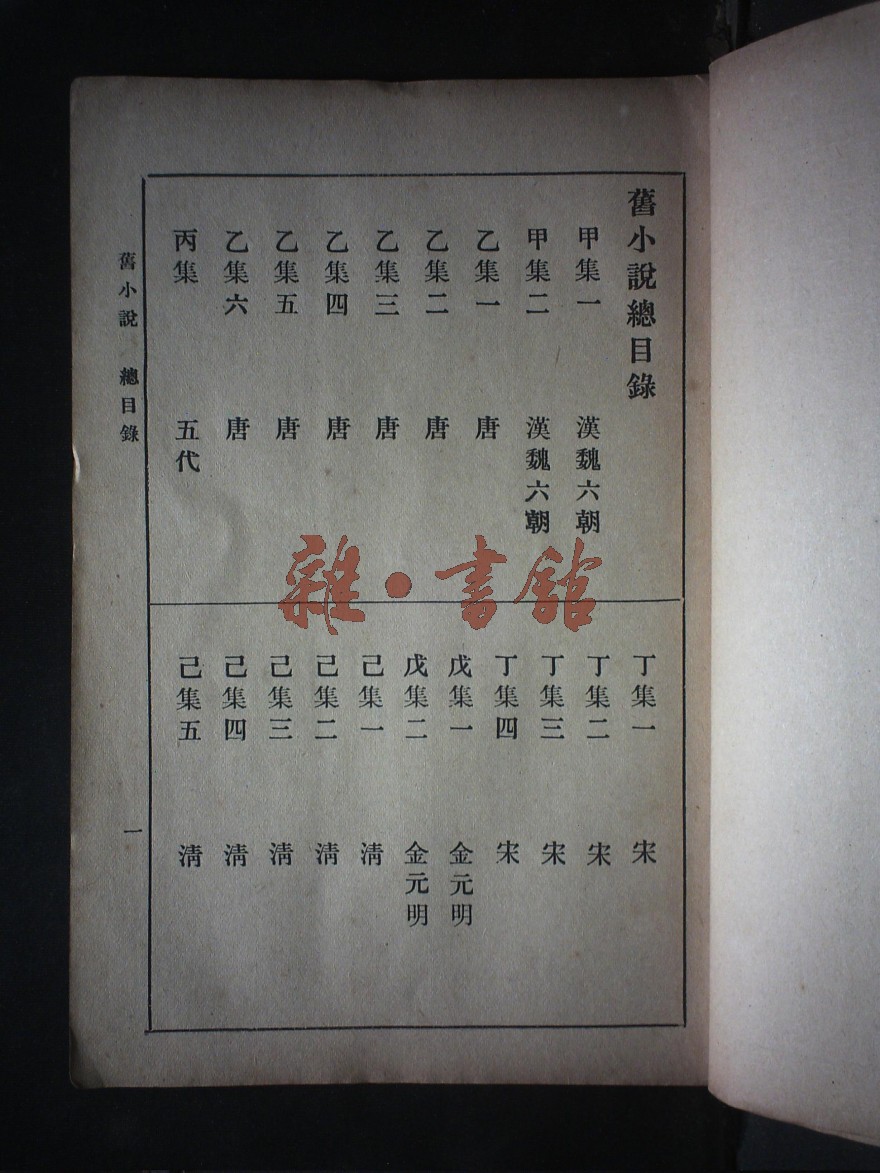 舊小說總目錄
甲集一 漢魏六朝
甲集二 漢魏六朝
乙集一 唐
乙集二 唐
乙集三 唐
乙集四 唐
乙集五 唐
乙集六 唐
丙集 五代
丁集一 宋
丁集二 宋
丁集三 宋
丁集四 宋
戊集一 金元明
戊集二 金元明
己集一 淸
己集二 淸
己集三 淸
己集四 淸
己集五 淸
舊小說 總目錄
一
雜·書館